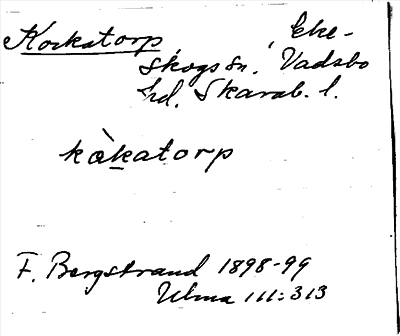 Korkatorp, Eke-
skogs sn. Vadsbo
hd. Skarab. l.
kàkatorp
F. Bergstrand 1898-99
Ulma 111:313